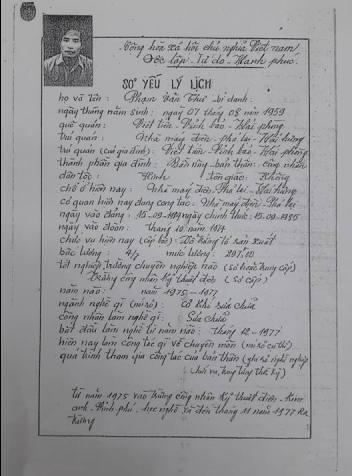 Cộng hòa xã hội chủ nghĩa Việt nam
Độc lập - Tự do - Hạnh phúc.
SƠ YẾU LÝ LỊCH
họ và tên: Phạm Văn Thư bí danh:
ngày tháng năm sinh: ngày 07 tháng 08 năm 1959
quê quán: Việt tiến - Vĩnh bảo - Hải phòng
trú quán: Nhà máy điện - Phả lại - Hải hưng
trú quán (của gia đình): Việt tiến - Vĩnh bảo - Hải phòng
thành phần gia đình: Bần nông - bản thân: công nhân
dân tộc: Kinh tôn giáo: Không
chỗ ở hiện nay: Nhà máy điện Phả lại - Hải hưng
cơ quan hiện nay đang công tác: Nhà máy điện - Phả lại
ngày vào đảng: 15-09- ngày chính thức: 15-09-1985
ngày vào đoàn: tháng 10 năm 1974
chức vụ hiện nay: tổ sản xuất
bậc lương: 4/7 mức lương:
tốt nghiệp trường chuyên nghiệp nào (sơ hoặc trung cấp)
Trường công nhân kỹ thuật điện (sơ cấp)
năm nào: năm 1975 - 1977
ngành nghề gì (nói rõ): Cơ khí sửa chữa
công nhân làm nghề gì: Sửa chữa
bắt đầu làm nghề từ năm nào: tháng 12 - 1977
hiện nay làm công tác gì về chuyên môn (nói rõ cụ thể)
quá trình tham gia công tác của bản thân (ghi rõ nghề nghiệp
chức vụ, từng thời kỳ)
từ năm 1975 vào trường công nhân kỹ thuật điện - Kim
anh - Vĩnh phú. học nghề và đến tháng 11 năm 1977 Ra
trường